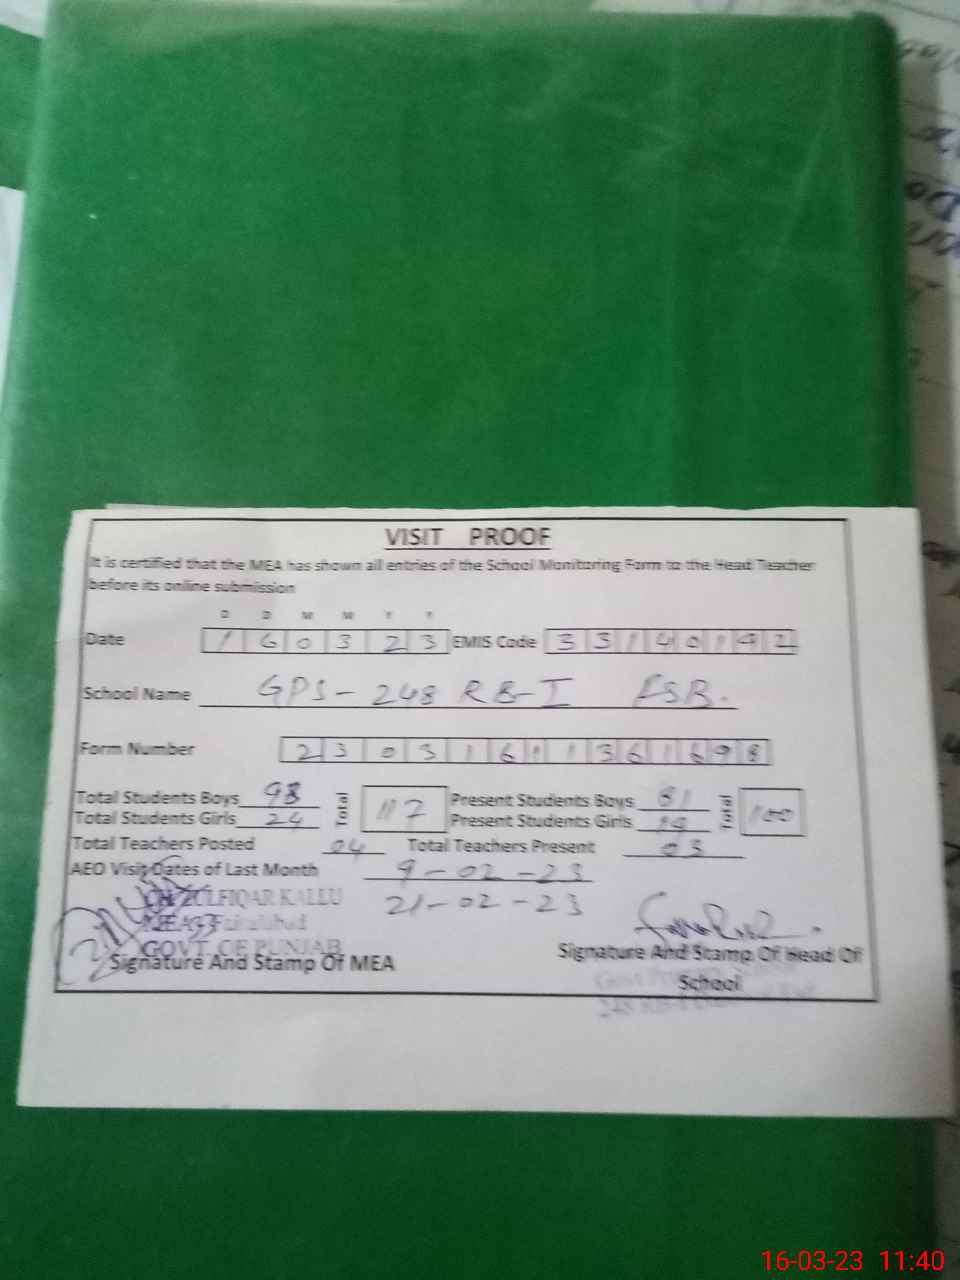 VISIT PROOF
It is certified that the MEA has shown all entries of the School Monitoring Form to the Head Teacher
before its online submission
D D M M Y Y
Date 160323 EMIS Code 33140192
School Name GPS-248 RB-I FSB.
Form Number 23031611361698
Total Students Boys 93 Total 117 Present Students Boys 81 Total 100
Total Students Girls 24 Present Students Girls 19
Total Teachers Posted 04 Total Teachers Present 03
AEO Visit Dates of Last Month 9-02-23
21-02-23
CH ZULFIQAR KALLU
MEA Faisalabad
GOVT. OF PUNJAB
Signature And Stamp Of MEA
Signature And Stamp Of Head Of
School
16-03-23 11:40